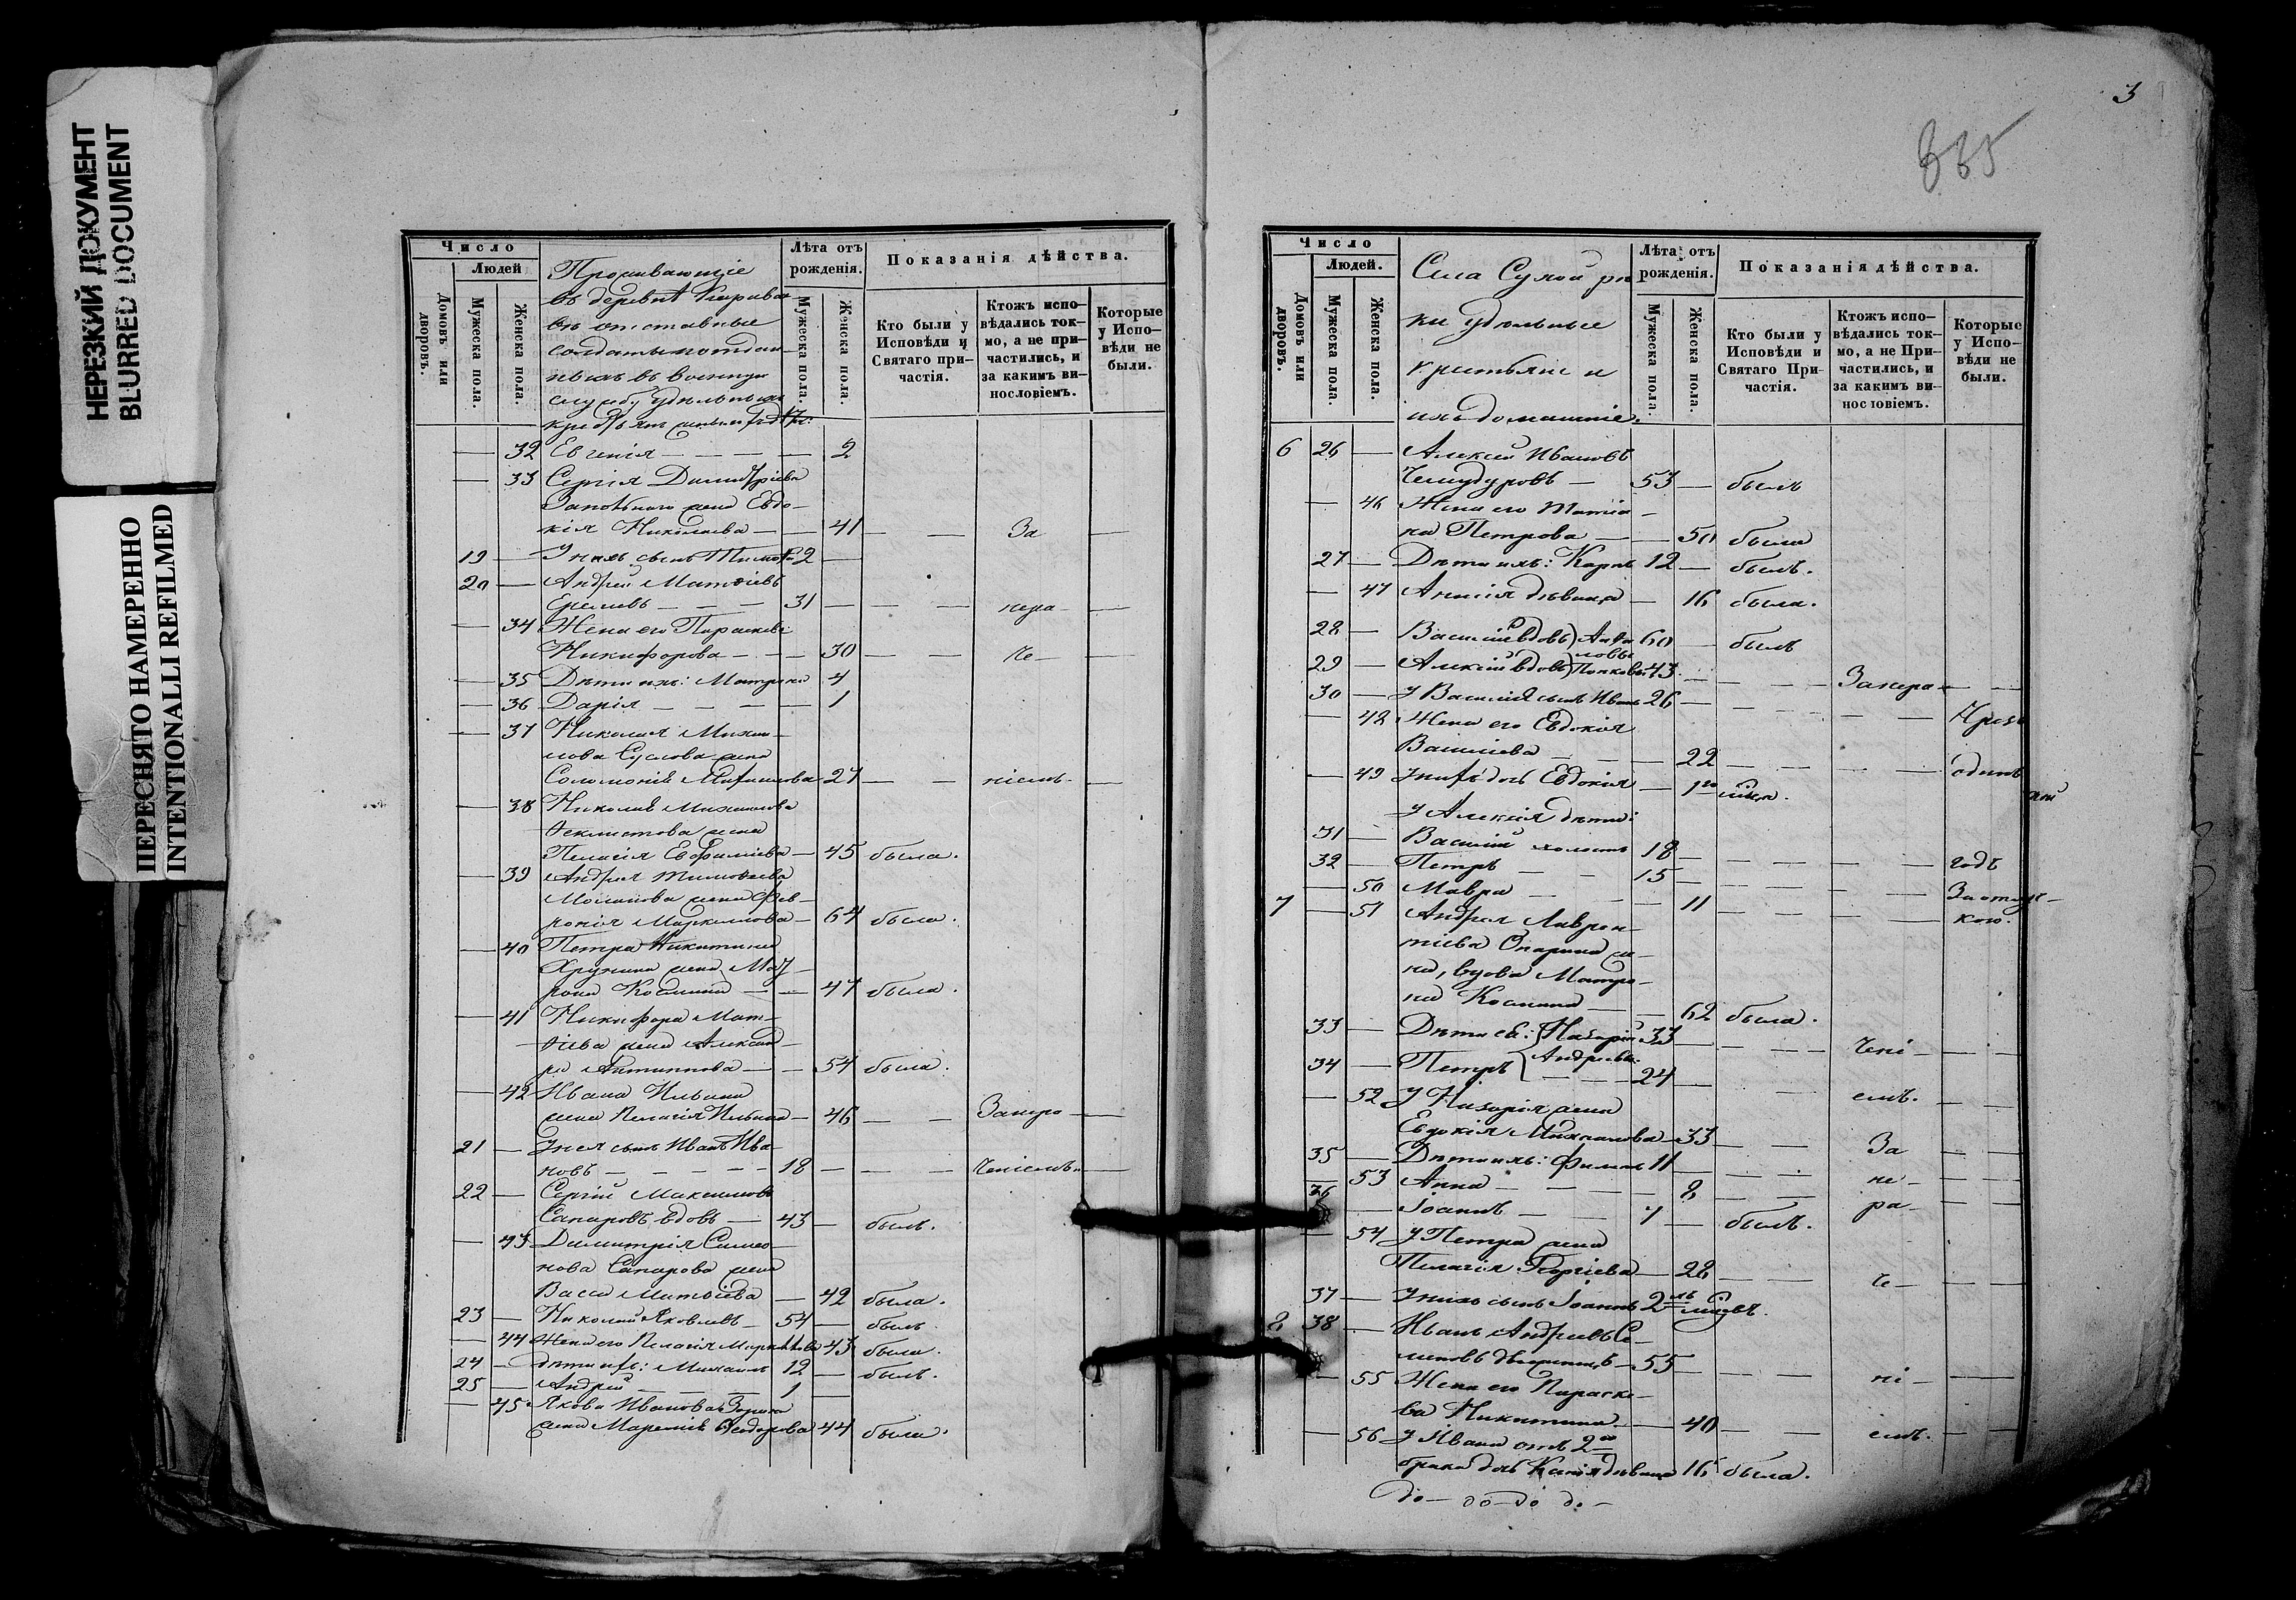 НЕРЕЗКИЙ ДОКУМЕНТ
BLURRED DOCUMENT
ПЕРЕСНЯТО НАМЕРЕННО
INTENTIONALLI REFILMED
Число
Людей
Домовъ или дворовъ.
Мужеска пола.
Женска пола.
Проживающіе
въ деревнѣ
отставные
солдаты
въ военную
службу удѣльныхъ
Лѣта отъ рожденія.
Мужеска пола.
Женска пола.
Показанія дѣйства.
Кто были у Исповѣди и Святаго причастія.
Ктожъ исповѣдались токмо, а не причастились, и за какимъ винословіемъ.
Которые у Исповѣди не были.
— 32 Евгенія — — — — 2
— 33 Сергія Димитріева
жена Евдо-
кія Николаева — — 41 — — За —
19 — У нихъ сынъ 2 —
20 — Андрей Матѳіевъ
— — — 31 — — — нера- —
— 34 Жена его Параскева
Никифорова — — — 30 — — че- —
— 35 Дѣти ихъ: Матрона 4
— 36 Дарія — — — — 1
— 37 Николая Михаи-
лова Суслова жена
Соломонія 27 — — ніемъ. —
— 38 Николая Михаилова
Ѳеклистова жена
Пелагія Евфиміева — 45 была.
— 39 Андрея Тимоѳеева
жена Фев-
ронія Маркелова — 64 была.
— 40 Петра Никитина
жена Мат-
рона Космина — — 47 была.
— 41 Никифора Мат-
ѳіева жена Александ-
ра Антиппова — — 54 была.
— 42 Ивана Ильина
жена Пелагія Ильина — 46 — — Занера- —
21 — У нея сынъ Иванъ Ива-
новъ — — — — — 18 — — — ченіемъ —
22 — Сергій Максимовъ
Сапаровъ вдовъ — 43 — былъ.
— 43 Димитрія Симео-
нова Сапарова жена
Васса Матѳіева — 42 была.
23 — Николай Яковлевъ — 54 — былъ.
— 44 Жена его Пелагія 43 была.
24 — дѣти ихъ: Михаилъ 12 — былъ.
25 — Андрей — — — 1 —
— 45 Якова Иванова
жена Ѳеодорова 44 была.
3
885
Число
Людей.
Домовъ или дворовъ.
Мужеска пола.
Женска пола.
Села Сухой рѣ
ки удѣльные
крестьяне и
ихъ домашніе.
Лѣта отъ рожденія.
Мужеска пола.
Женска пола.
Показанія дѣйства.
Кто были у Исповѣди и Святаго Причастія.
Ктожъ исповѣдались токмо, а не Причастились, и за какимъ винословіемъ.
Которые у Исповѣди не были.
6 26 — Алексій Ивановъ
Чемудуровъ — 53 — былъ
— 46 Жена его Татіа-
на Петрова — — 50 была
27 — Дѣти ихъ: Карпъ 12 — былъ.
— 47 Анисія дѣвица — 16 была.
28 — Василій вдовъ 60 — былъ
29 — Алексій вдовъ 43 — — — Занера- — —
30 — У Василія сынъ Иванъ 26 — — — — — Чрез
— 48 Жена его Евдокія
Василіева — — — 22 — — — — одинъ
— 49 У нихъ дочь Евдокія — 1го мѣся.
У Алексія дѣти:
31 — Василій холостъ 18 — — — — — годъ
32 — Петръ — — 15 — — — — — За отлуч-
— 50 Мавра — — — — 11 — — — — кою.
7 — 51 Андрея Лаврен-
тіева Опарина же-
на, вдова Матро-
на Космина — — 62 была.
33 — Дѣти ея: Назарій 33 — — — — чені- — —
34 — Петръ Андреевы — — — 24 — емъ. — —
— 52 У Назарія жена
Евдокія Михаилова — 33 — — За — —
35 — Дѣти ихъ: 11 — — — не- — —
— 53 Анна — — — — 8 — — ра- — —
36 — Іоаннъ — — 7 — былъ.
— 54 У Петра жена
Пелагія Георгіева — 28 — — че- — —
37 — У нихъ сынъ Іоаннъ 2хъ мѣсяцевъ.
8 38 — Иванъ Андреевъ Се-
меновъ — 55 — — — ні- —
— 55 Жена его Параске-
ва Никитина — — 40 — — емъ. — —
— 56 У Ивана отъ 2го
брака дочь дѣвица 16 была.
до — до — до до —